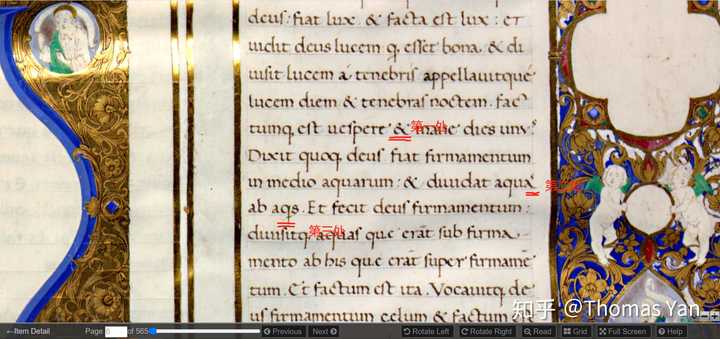 deus: fiat lux. & facta est lux: et
uidit deus lucem q esset bona. & di
uisit lucem á tenebris appellauitque
lucem diem & tenebras noctem. fac
tumq est uespere & mane dies unus
第一处
Dixit quoq deus fiat firmamentum
in medio aquarum: & diuidat aquas
第二
ab aqs. Et fecit deus firmamentum:
diuisitq aquas que erāt sub firma
第三处
mento ab his que erāt super firmamē
tum. Et factum est ita. Vocauitq de
us firmamentum celum & factum
知乎 @Thomas Yan
←Item Detail Page of 565 Previous Next Rotate Left Rotate Right Read Grid Full Screen Help